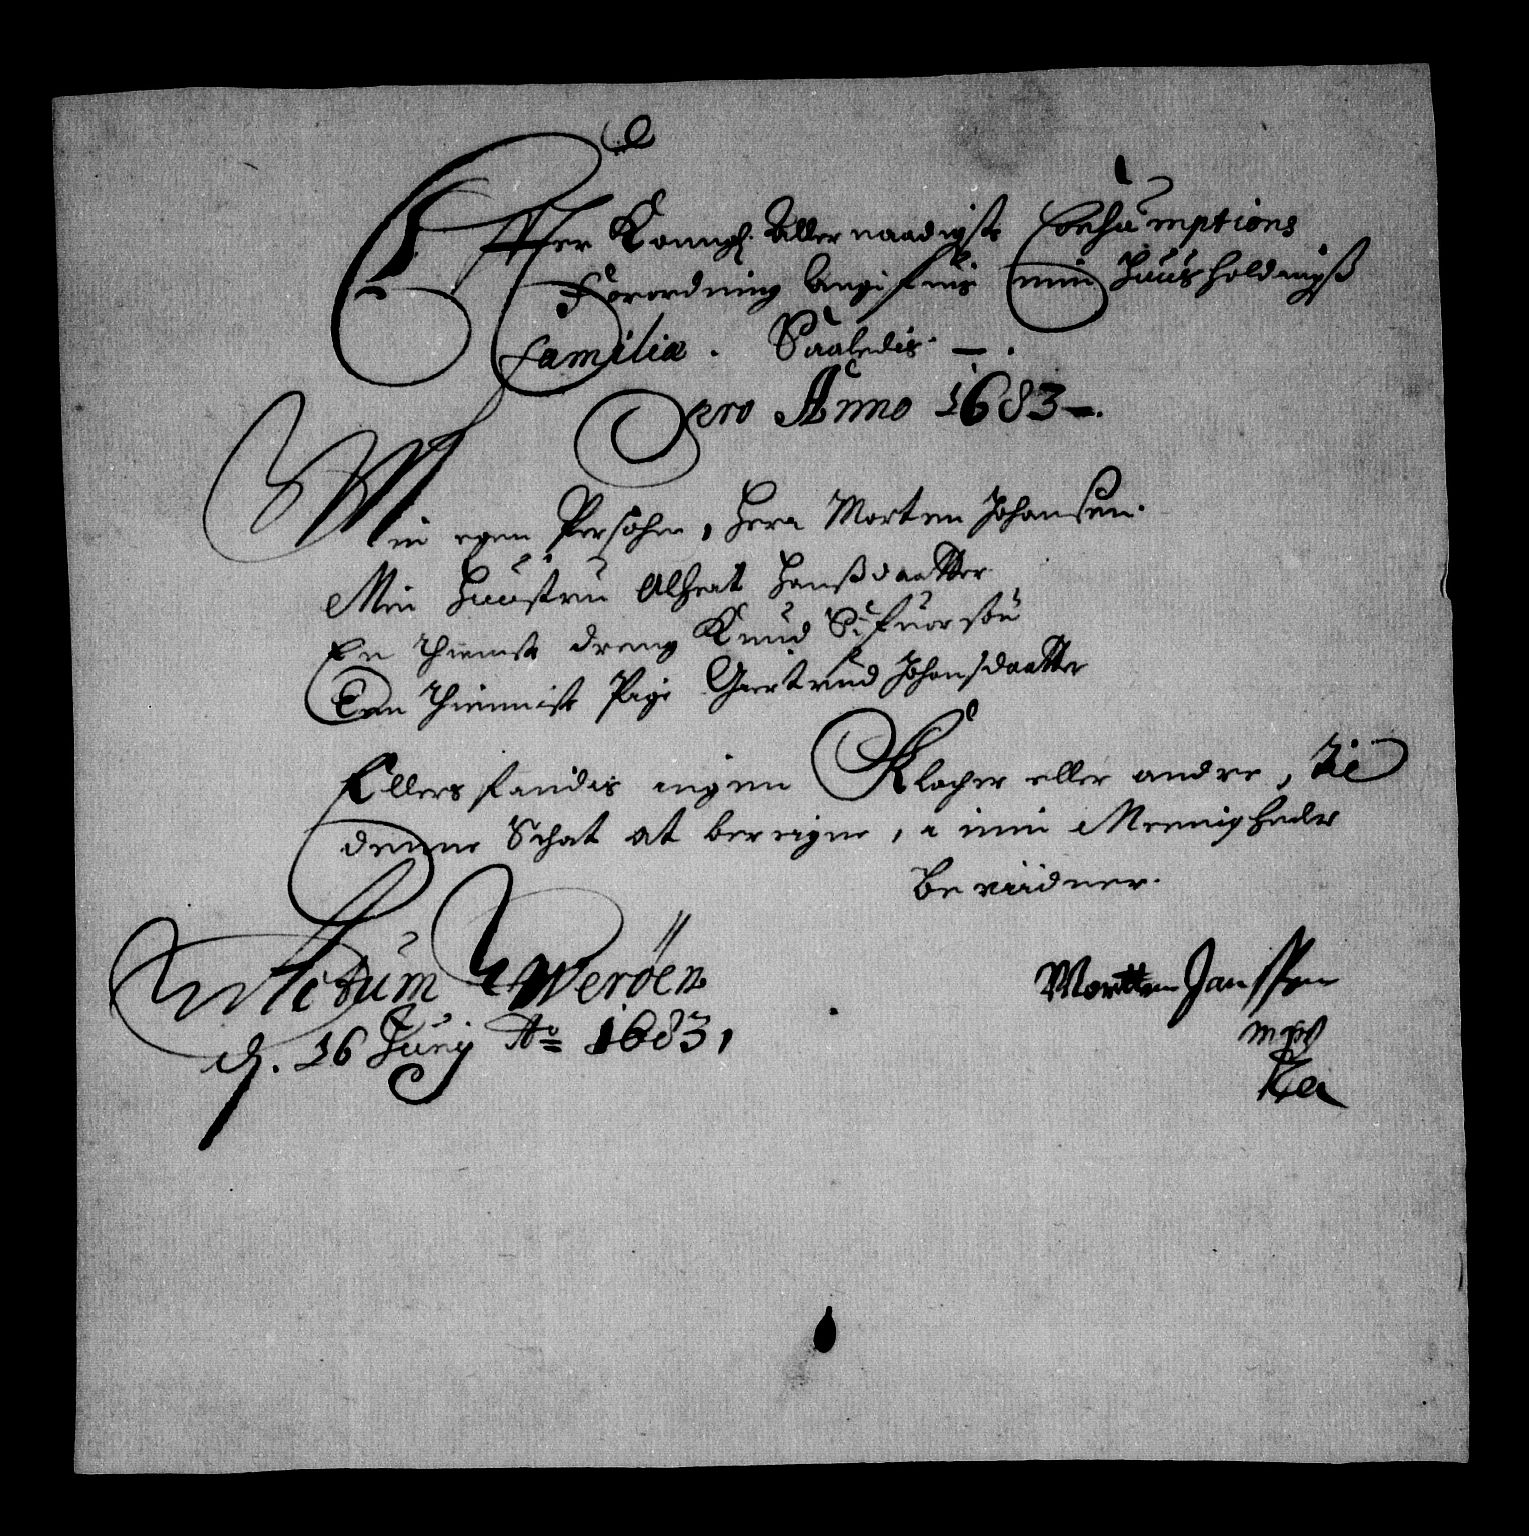 Effter Konngl. Aller naadigste Consumptions
Forordning Angifues min Huusholdningß
familie. Saaledis —.
pro Anno 1683 —.
Min egen Persohn, Herr Morten Johansen.
Min Huustru Alheat Hanßdaatter
En thienist dreng Knud Sifuorsøn
Een thienniste Pige Giertrud Johansdaatter
Ellers fandis ingen Klocher eller andre, til
denne Schat at bereigne, i min Meenigheder
Beviidner.
Actum Werøen
d. 16 Junij Ao 1683,
Mortten Janssen
mpp